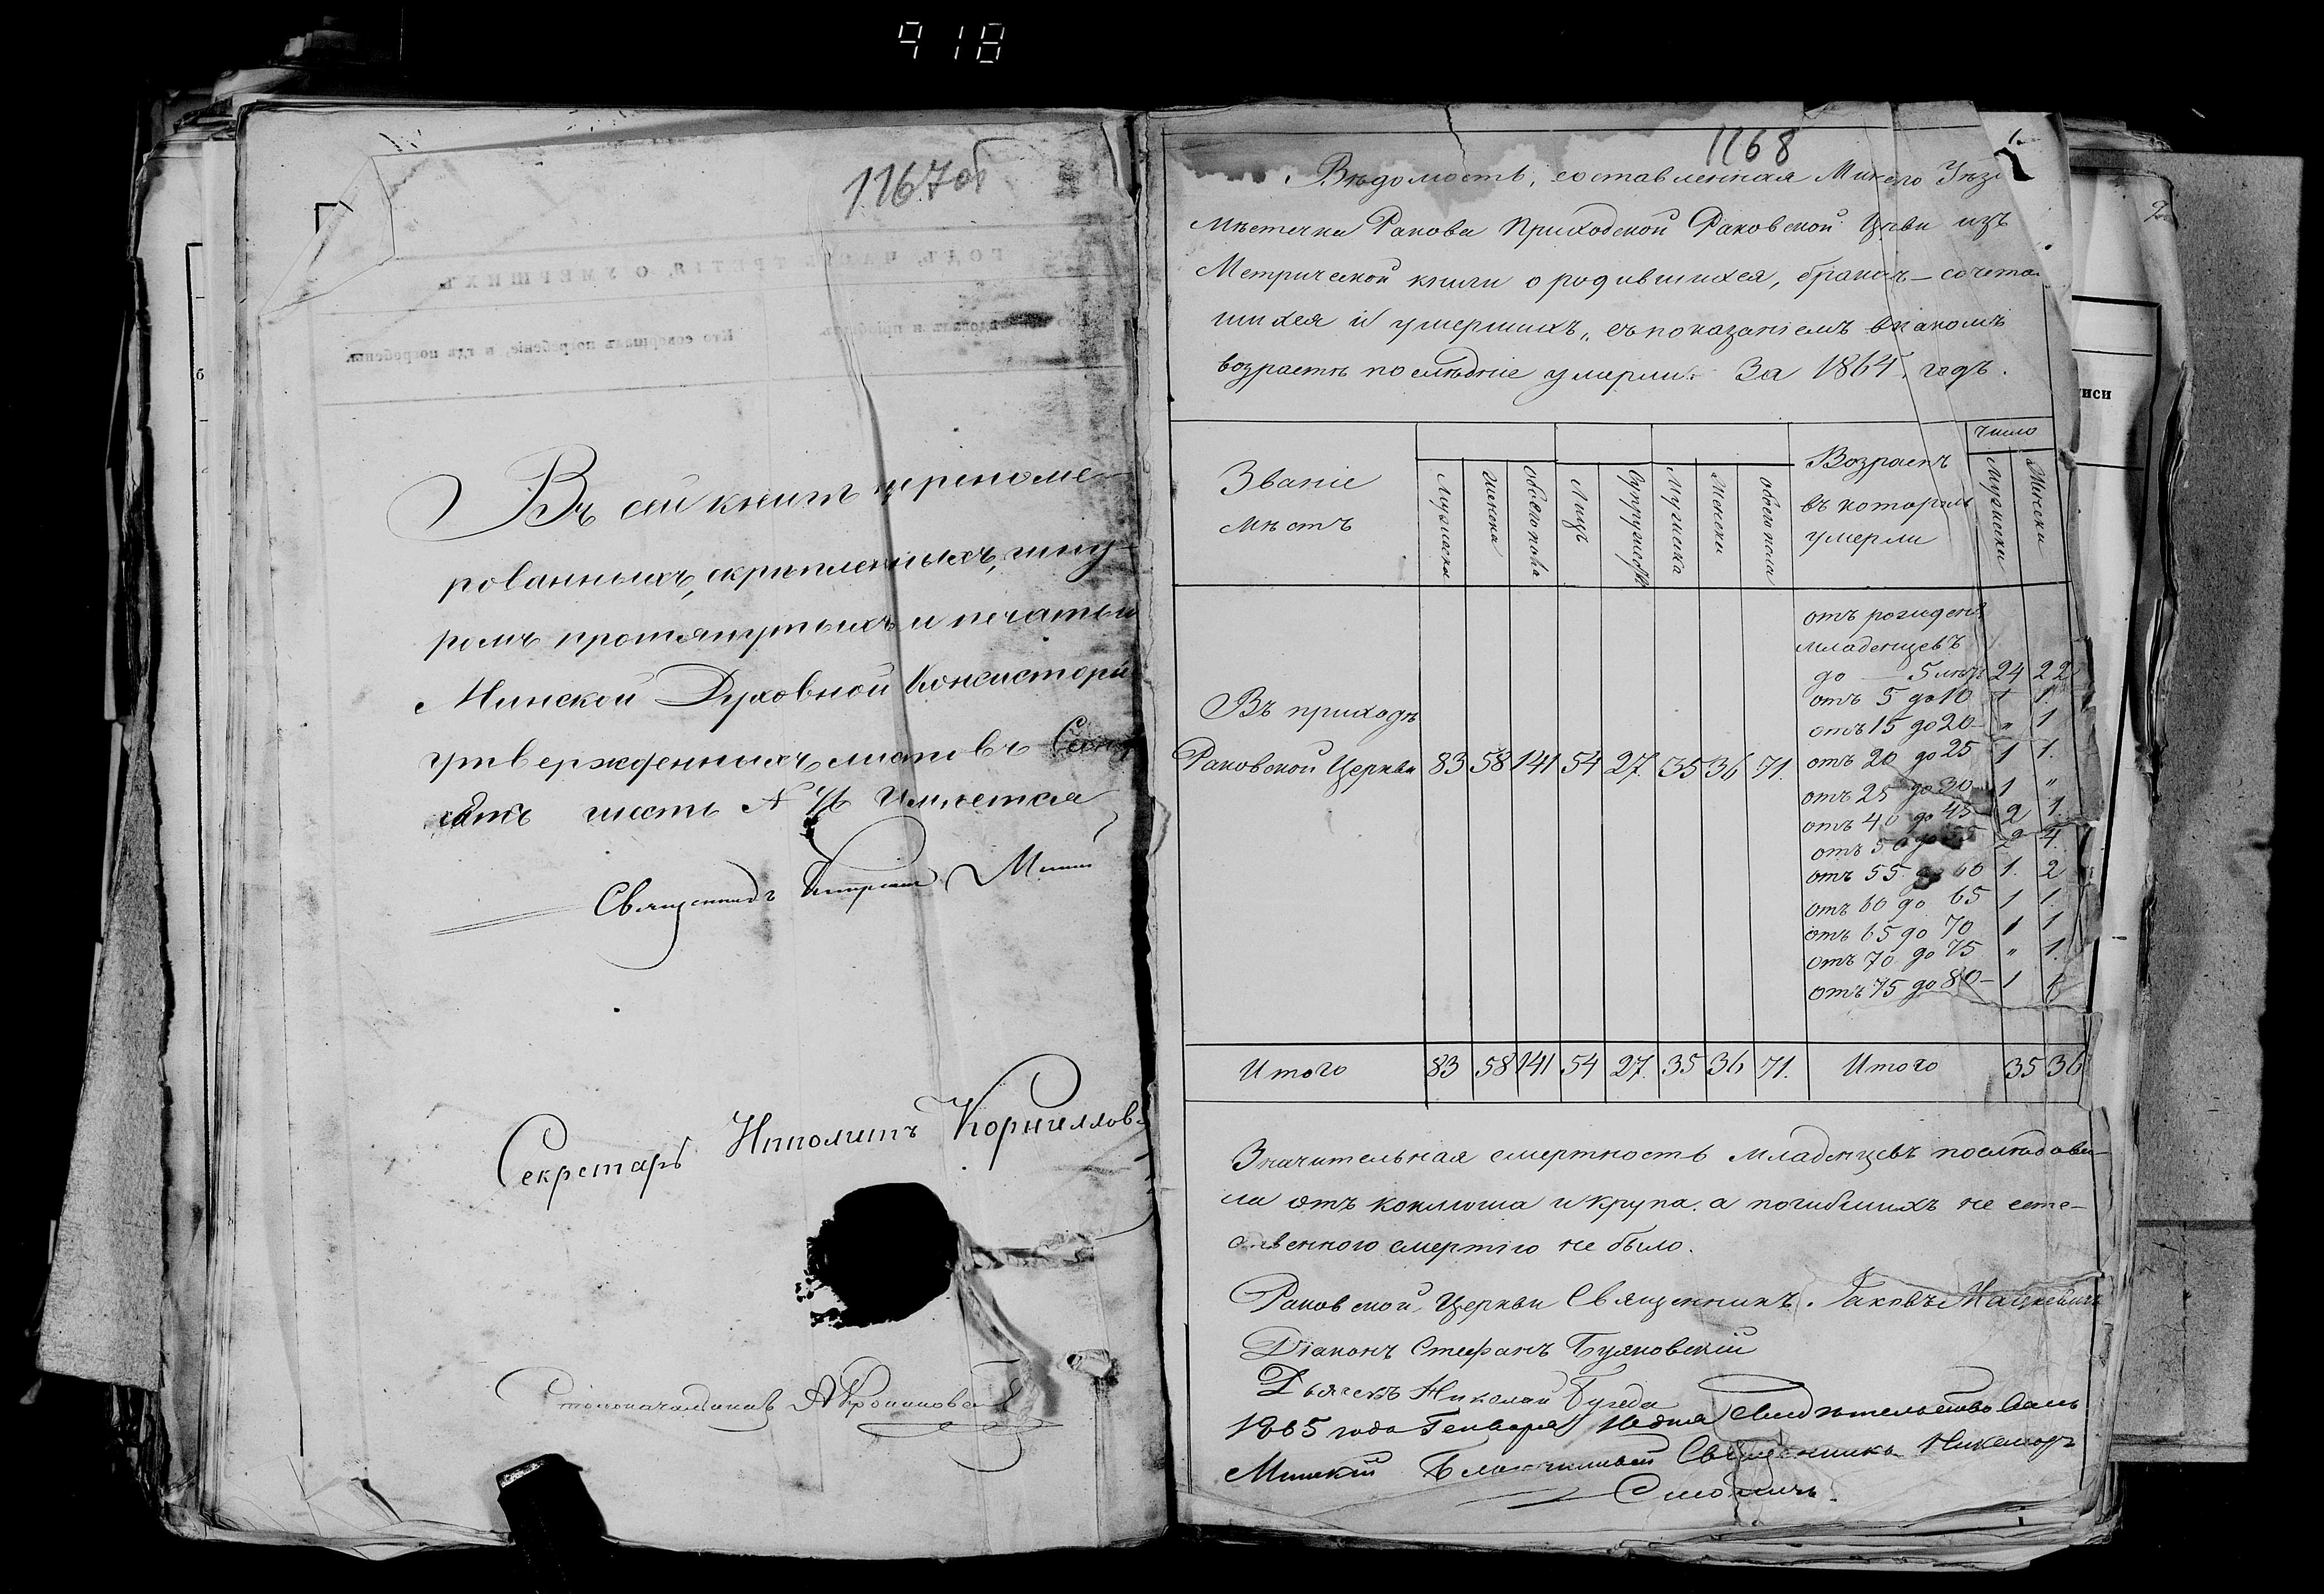 918
1167об
ГОДЪ, ЧАСТЬ ТРЕТІЯ, О УМЕРШИХЪ.
Кто совершалъ погребеніе, и гдѣ погребены.
Въ сей книгѣ
рованныхъ, скрѣпленныхъ, шну-
ромъ протянутыхъ и печатью
Минской Духовной Консисторіи
утвержденныхъ листовъ
шесть имѣется
Священникъ
Секретарь Ипполитъ Корниллов
Столоначальникъ
1168
Вѣдомость, составленная Минского Уѣз
мѣстечка Ракова Приходской Раковской Цркви изъ
Метрической книги о родившихся, бракомъ-сочета
шихся и умершихъ, съ показаніемъ въ какомъ
возрастѣ послѣдніе умерли. За 1864 годъ.
Званіе
мѣстъ
Мужска
Женска
Обоего пола
Лицъ
Супружествъ
Мужска
Женски
обоего пола
Возрастъ
въ которомъ
умерли
число
Мужески
Женски
отъ рожденія
младенцевъ
до — 5 лѣтъ 24 22
отъ 5 до 10 1 1.
отъ 15 до 20 — „ 1
Въ приходѣ
Раковской Церкви 83 58 141 54 27. 35 36 71. отъ 20 до 25 1 1.
отъ 25 до 30 1 „
отъ 40 до 45 2 1.
отъ 50 до 55 2 4.
отъ 55 до 60 1. 2
отъ 60 до 65 1 1.
отъ 65 до 70 1 1
отъ 70 до 75 „ 1.
отъ 75 до 80 — 1 1
Итого 83 58 141 54 27. 35 36 71. Итого 35 36
Значительная смертность младенцевъ послѣдова-
ла отъ коклюша и крупа, а погибшихъ не есте-
ственного смертію не было.
Раковской Церкви Священникъ. Іаковъ Мацкевичъ
Діаконъ Стефанъ Буяковскій
Дьячекъ Николай
1865 года Генваря дня свидѣтельствовалъ
Минскій Благочинный Священникъ Никаноръ
Смоличъ.
иси